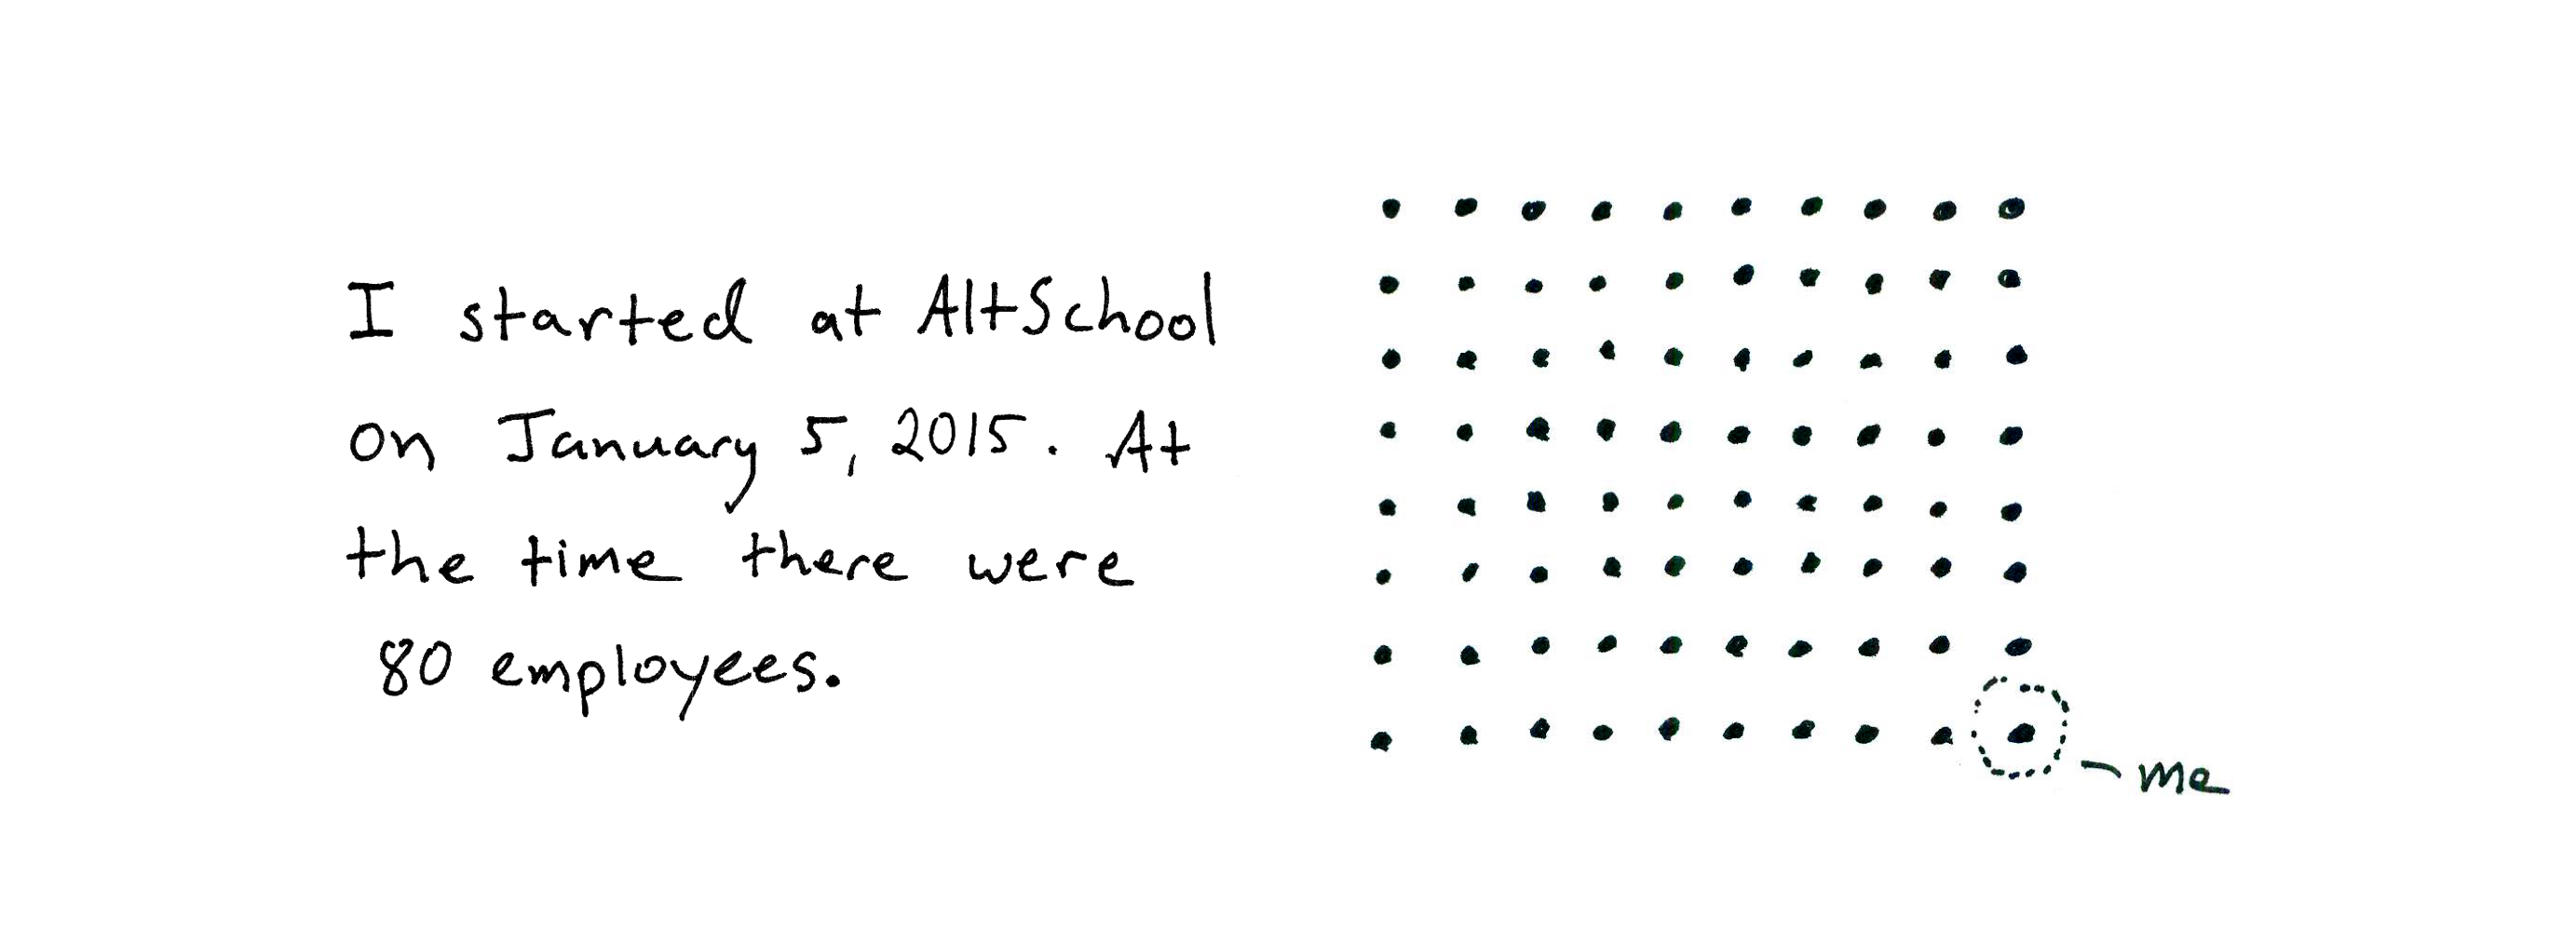 I started at AltSchool
on January 5, 2015. At
the time there were
80 employees.
me